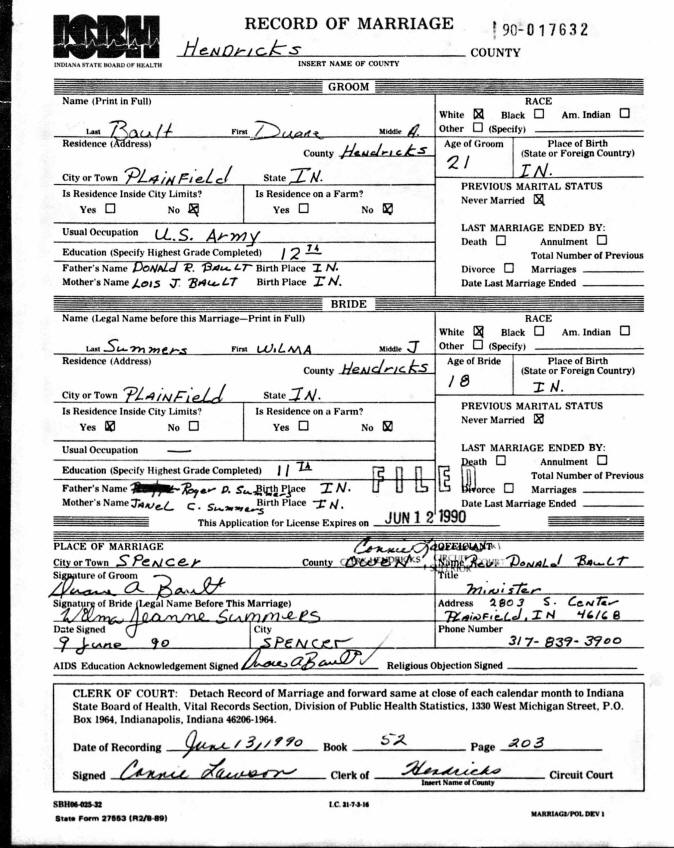 ISBH RECORD OF MARRIAGE 90-017632
INDIANA STATE BOARD OF HEALTH Hendricks COUNTY
INSERT NAME OF COUNTY
GROOM
Name (Print in Full) RACE
White ☒ Black ☐ Am. Indian ☐
Last Bault First Duane Middle A. Other ☐ (Specify)
Residence (Address) Age of Groom Place of Birth
County Hendricks 21 (State or Foreign Country)
City or Town PLAINField State IN. IN.
Is Residence Inside City Limits? Is Residence on a Farm? PREVIOUS MARITAL STATUS
Yes ☐ No ☒ Yes ☐ No ☒ Never Married ☒
Usual Occupation U.S. Army LAST MARRIAGE ENDED BY:
Death ☐ Annulment ☐
Education (Specify Highest Grade Completed) 12 TH Total Number of Previous
Father's Name DONALD R. BAULT Birth Place IN. Divorce ☐ Marriages
Mother's Name LOIS J. BAULT Birth Place IN. Date Last Marriage Ended
BRIDE
Name (Legal Name before this Marriage—Print in Full) RACE
White ☒ Black ☐ Am. Indian ☐
Last Summers First WILMA Middle J Other ☐ (Specify)
Residence (Address) Age of Bride Place of Birth
County Hendricks 18 (State or Foreign Country)
City or Town PLAINField State IN. IN.
Is Residence Inside City Limits? Is Residence on a Farm? PREVIOUS MARITAL STATUS
Yes ☒ No ☐ Yes ☐ No ☒ Never Married ☒
Usual Occupation — LAST MARRIAGE ENDED BY:
Death ☐ Annulment ☐
Education (Specify Highest Grade Completed) 11 TH FILED Total Number of Previous
Father's Name Roger D. Summers Birth Place IN. Divorce ☐ Marriages
Mother's Name JANEL C. Summers Birth Place IN. Date Last Marriage Ended
This Application for License Expires on JUN 12 1990
PLACE OF MARRIAGE Connie OFFICIANT
City or Town SPENCER County OWEN Name Rev. DONALD BAULT
Signature of Groom Title
Duane A Bault minister
Signature of Bride (Legal Name Before This Marriage) Address 2803 S. CENTER
Wilma Jeanne Summers PLAINFIELD, IN 46168
Date Signed City Phone Number
9 June 90 SPENCER 317-839-3900
AIDS Education Acknowledgement Signed Duane A Bault Religious Objection Signed
CLERK OF COURT: Detach Record of Marriage and forward same at close of each calendar month to Indiana
State Board of Health, Vital Records Section, Division of Public Health Statistics, 1330 West Michigan Street, P.O.
Box 1964, Indianapolis, Indiana 46206-1964.
Date of Recording June 13, 1990 Book 52 Page 203
Signed Connie Lawson Clerk of Hendricks Circuit Court
Insert Name of County
SBH06-025-32 I.C. 31-7-3-16 MARRIAG2/POL DEV 1
State Form 27553 (R2/8-89)